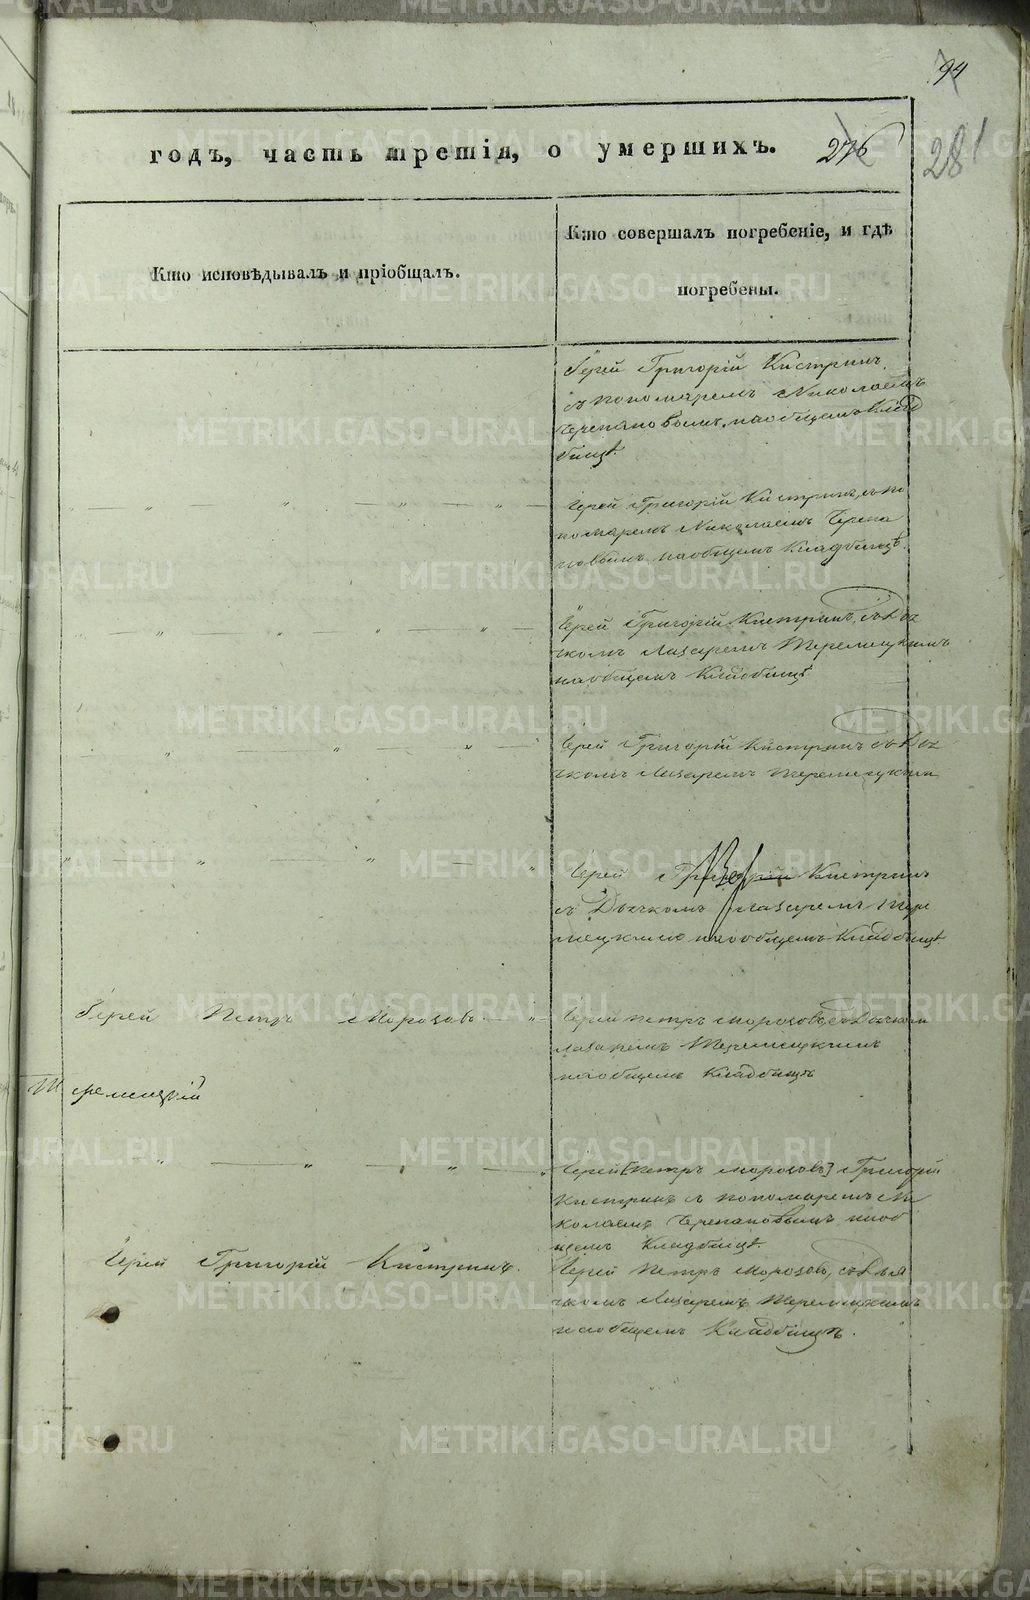 94
годъ, часть третія, о умершихъ. 276
281
Кто исповѣдывалъ и пріобщалъ.
Кто совершалъ погребеніе, и гдѣ
погребены.
Іерей Григорій Кистринъ
съ пономаремъ Николаемъ
Черепановымъ, на общемъ клад
бищѣ.
Іерей Григорій Кистринъ, съ по
номаремъ Николаемъ Черепа
новымъ на общемъ кладбищѣ.
Іерей Григорій Кистринъ, съ Дь
чкомъ Лазаремъ Теремецкимъ
на общемъ кладбищѣ
Іерей Григорій Кистринъ съ Дь
чкомъ Лазаремъ Теремецким
Іерей Григорій Кистринъ
съ Дьячкомъ Лазаремъ Тере
мецкимъ на общемъ кладбищѣ
Іерей Петръ Морозовъ
Іерей Петръ Морозовъ, съ Дьячком
Лазаремъ Теремецкимъ
на общемъ кладбищѣ
Теремецкій
Іерей [Петръ Морозовъ] Григорій
Кистринъ съ пономаремъ Ни
колаемъ Черепановымъ на об
щемъ кладбищѣ.
Іерей Григорій Кистринъ.
Іерей Петръ Морозовъ, съ Дья
чкомъ Лазаремъ Теремецкимъ
на общемъ кладбищѣ.
METRIKI.GASO-URAL.RU